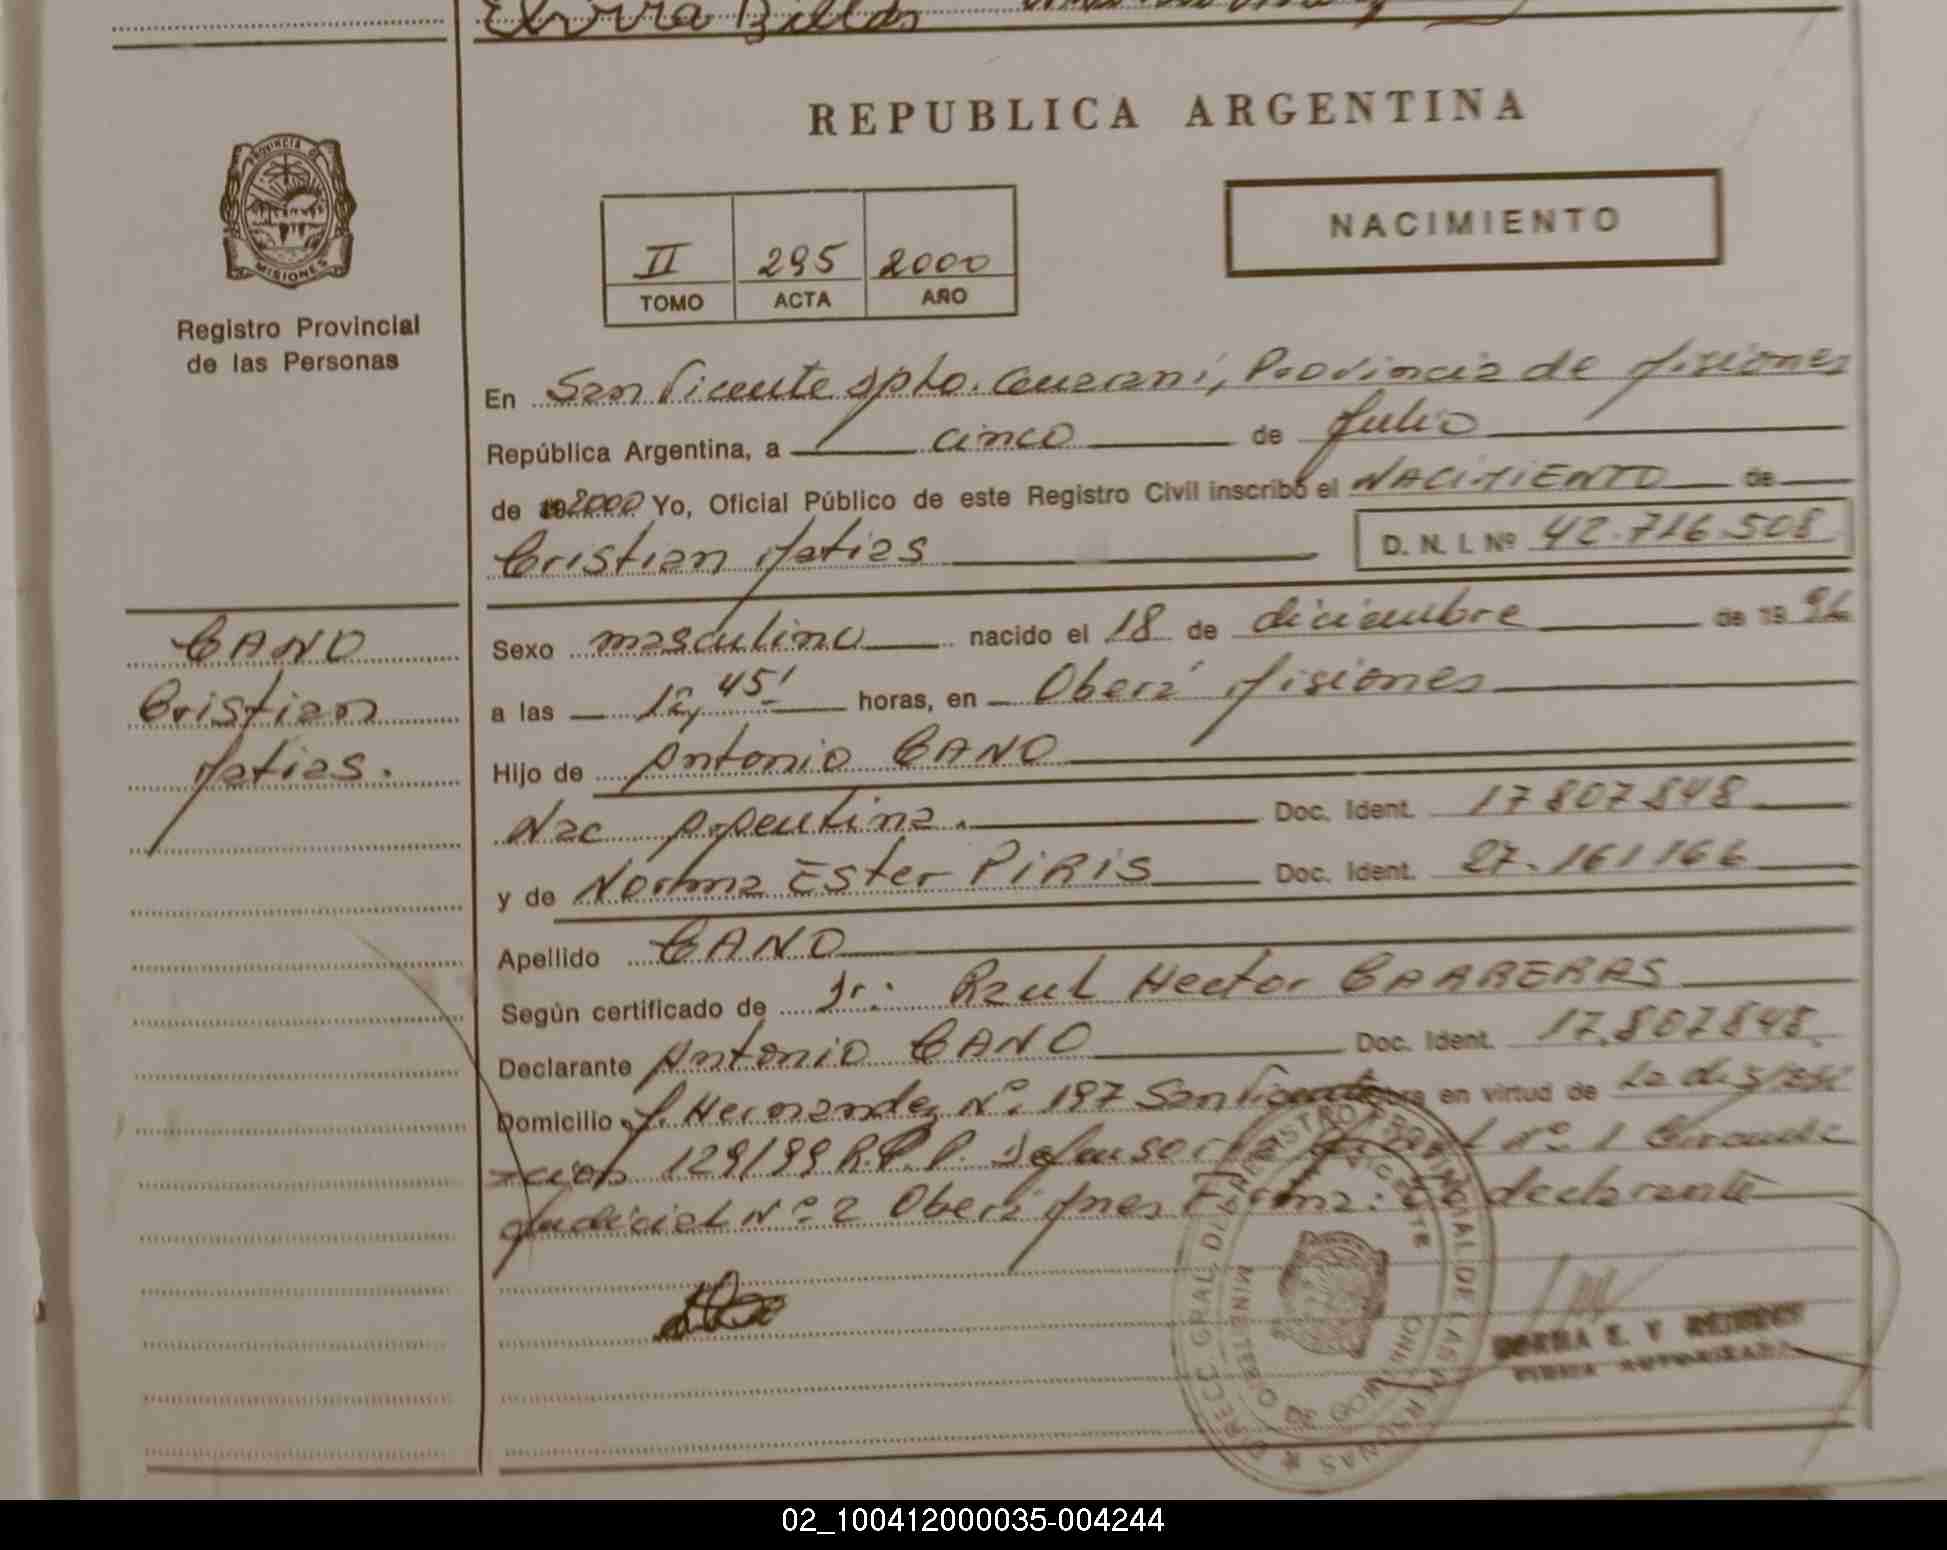 REPUBLICA ARGENTINA
PROVINCIA DE
MISIONES
Registro Provincial
de las Personas
NACIMIENTO
II 295 2000
TOMO ACTA AÑO
En San Vicente Dpto. Guarani, Provincia de Misiones
República Argentina, a cinco de Julio
de 2000 Yo, Oficial Público de este Registro Civil inscribo el NACIMIENTO de
Cristian Matias D. N. I. Nº 42.716.508
CANO
Cristian
Matias.
Sexo masculino nacido el 18 de diciembre de 19 96
a las 12,45' horas, en Oberá Misiones
Hijo de Antonio CANO
Nac Argentina. Doc. Ident. 17 807 848
y de Norma Ester PIRIS Doc. Ident. 27.161 166
Apellido CANO
Según certificado de Dr: Raul Hector CARRERAS
Declarante Antonio CANO Doc. Ident. 17.807848.
Domicilio J. Hernandez Nº. 197 San Vicente en virtud de La disposi
zcion 129/99 R.P.P. Defensoria Nº 1 Circunscri
Judicial Nº 2 Oberá Mnes Firma: declarante
DIRECC. GRAL. DEL REGISTRO PROVINCIAL DE LAS PERSONAS
MINISTERIO
FIRMA AUTORIZADA
02_100412000035-004244